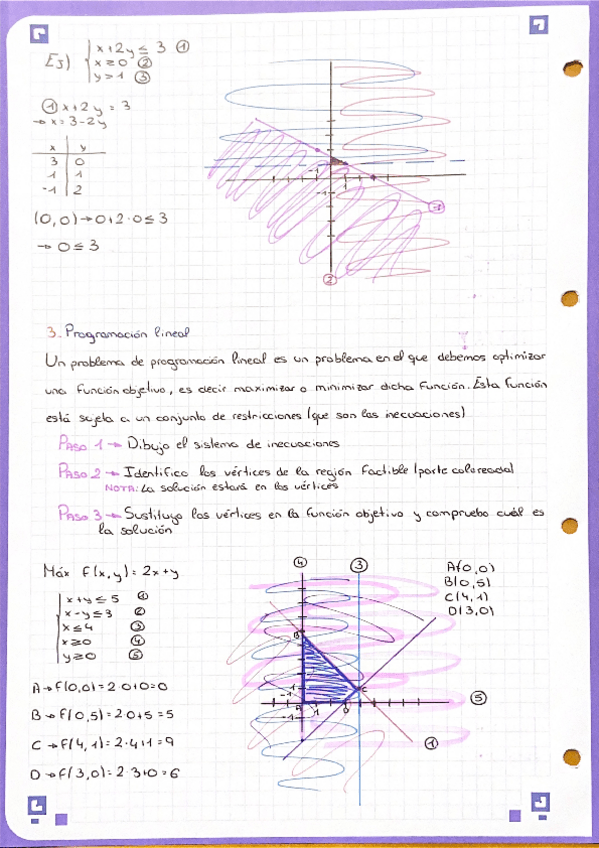 Ej) x+2y ≤ 3 ①
x ≥ 0 ②
y > 1 ③
① x+2y = 3
→ x = 3-2y
x | y
3 | 0
1 | 1
-1 | 2
(0,0) → 0+2·0 ≤ 3
→ 0 ≤ 3
②
3. Programación lineal
Un problema de programación lineal es un problema en el que debemos optimizar
una función objetivo, es decir maximizar o minimizar dicha función. Ésta función
está sujeta a un conjunto de restricciones (que son las inecuaciones)
PASO 1 → Dibujo el sistema de inecuaciones
PASO 2 → Identifico los vértices de la región factible (parte coloreada)
NOTA: La solución estará en los vértices
PASO 3 → Sustituyo los vértices en la función objetivo y compruebo cuál es
la solución
Máx f(x,y) = 2x+y
x+y ≤ 5 ①
x-y ≤ 3 ②
x ≤ 4 ③
x ≥ 0 ④
y ≥ 0 ⑤
A → f(0,0) = 2·0+0 = 0
B → f(0,5) = 2·0+5 = 5
C → f(4,1) = 2·4+1 = 9
D → f(3,0) = 2·3+0 = 6
④ ③
A(0,0)
B(0,5)
C(4,1)
D(3,0)
B
1
C
A 1 D
-1
⑤
①